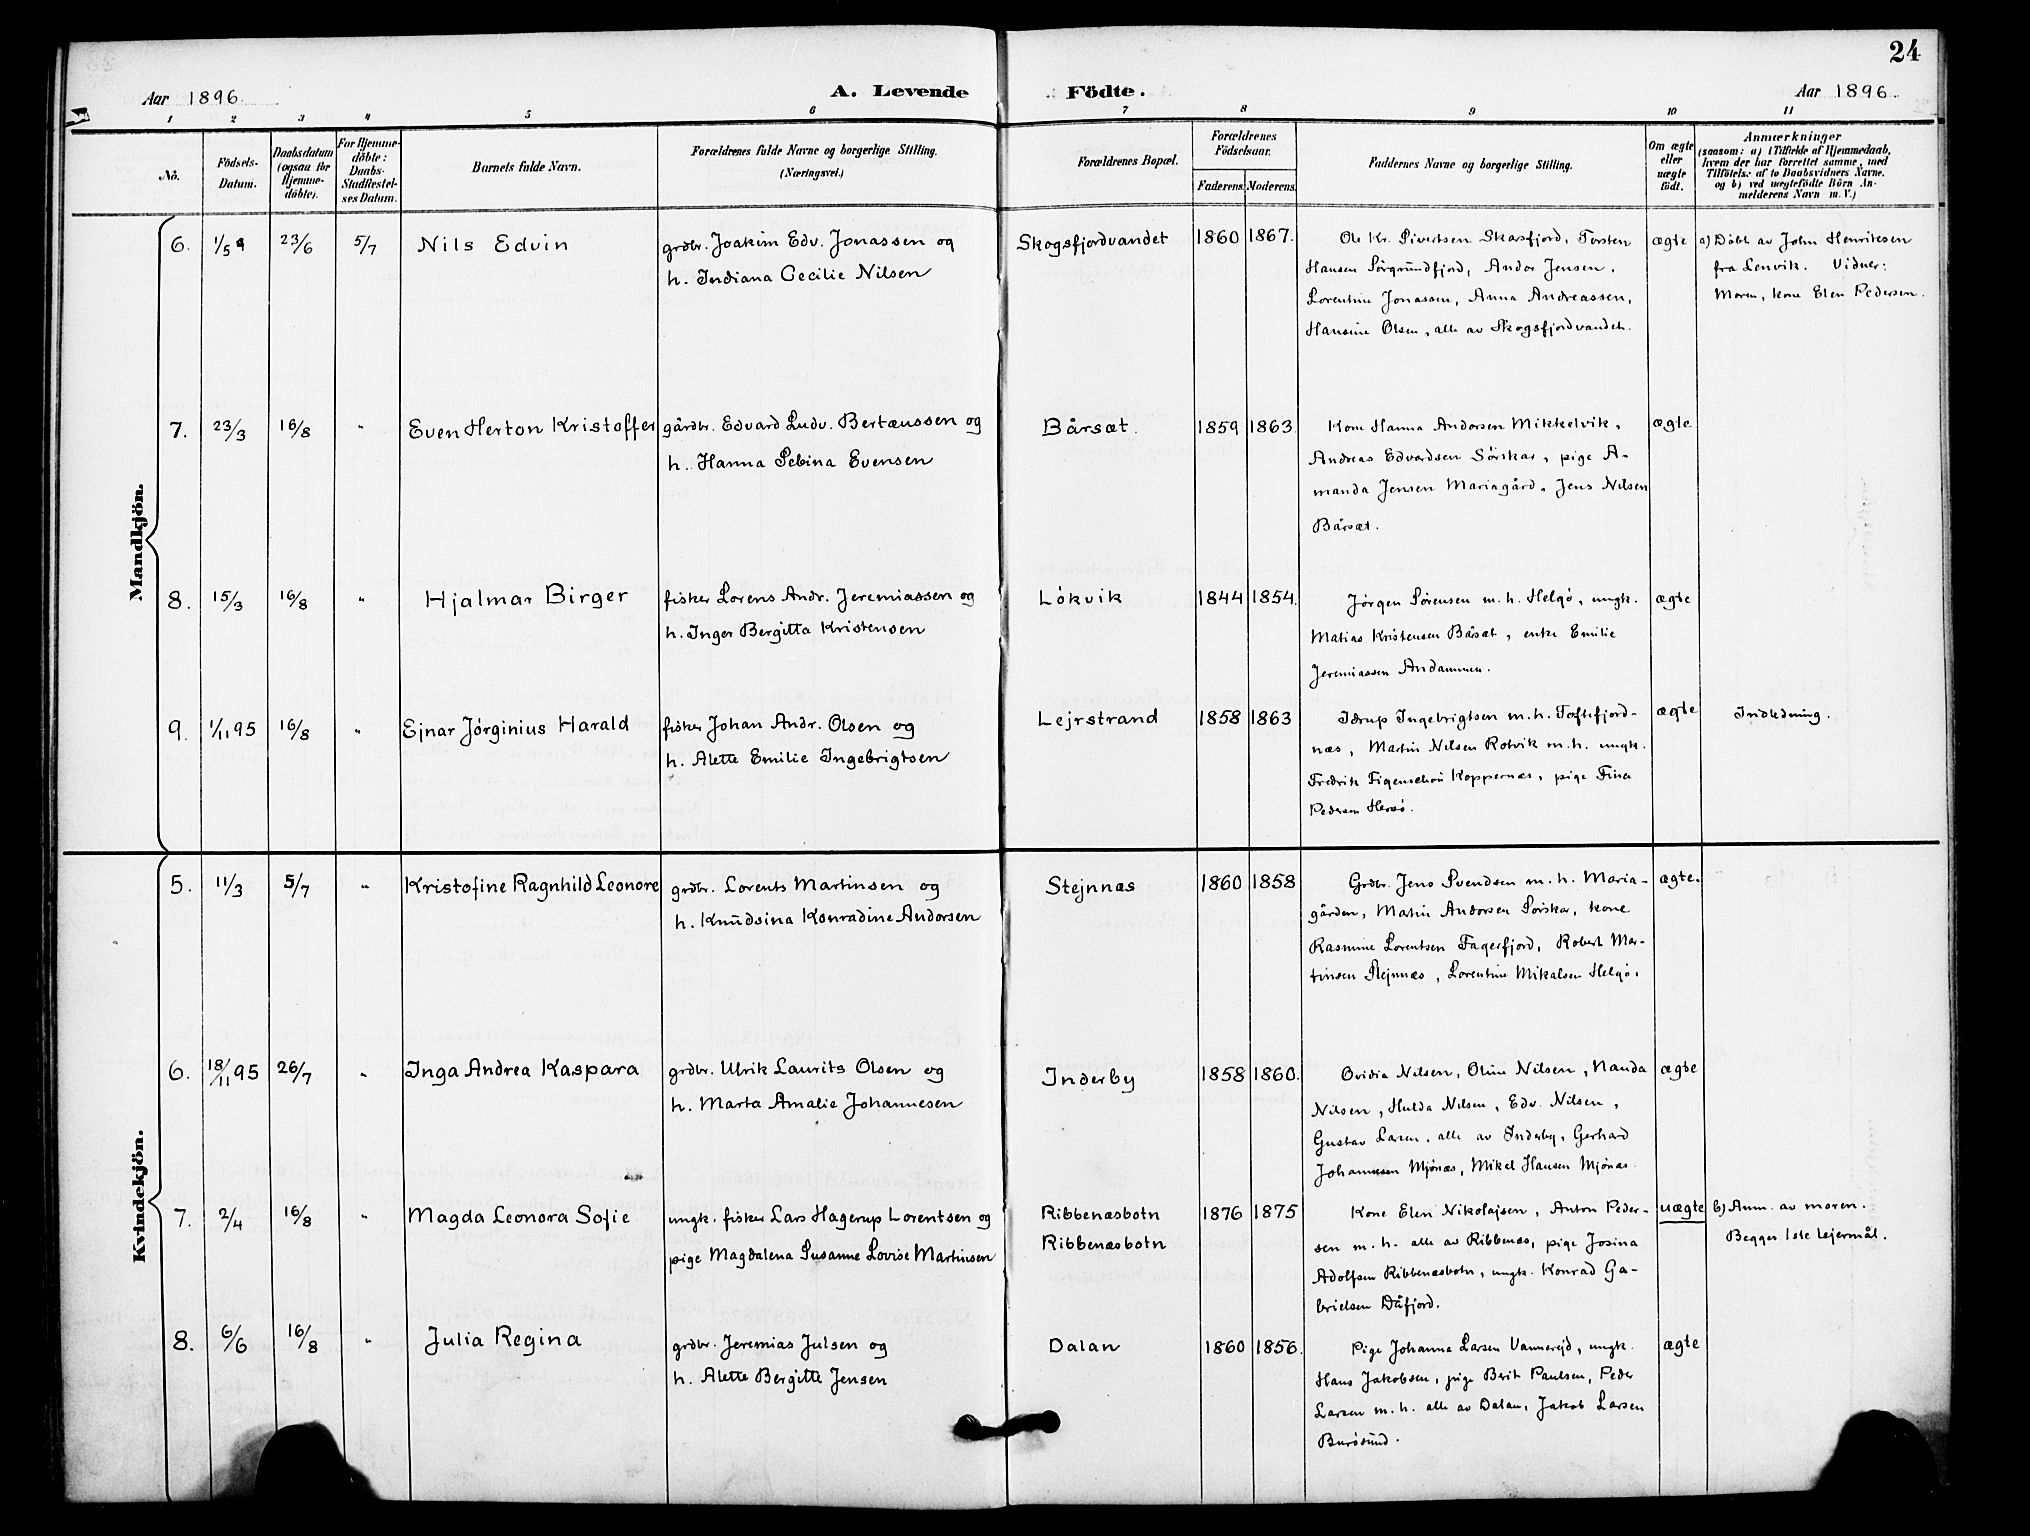 24
Aar 1896. A. Levende Födte. Aar 1896.
1 2 3 4 5 6 7 8 9 10 11
No.
Födsels-
Datum.
Daabsdatum
(ogsaa for
Hjemme-
döbte).
For Hjemme-
döbte:
Daabs-
Stadfestel-
ses Datum.
Barnets fulde Navn.
Forældrenes fulde Navne og borgerlige Stilling.
(Næringsvei.)
Forældrenes Bopæl.
Forældrenes
Födselsaar.
Faderens. Moderens.
Faddernes Navne og borgerlige Stilling.
Om ægte
eller
uægte
födt.
Anmærkninger
(saasom: a) i Tilfælde af Hjemmedaab,
hvem der har forrettet samme, med
Tilföiels. af to Daabsvidners Navne,
og b) ved uægtefödte Börn An-
melderens Navn m. V.)
Mandkjön.
6. 1/5 23/6 5/7 Nils Edvin
grdbr. Joakim Edv. Jonassen og
h. Indiana Cecilie Nilsen
Skogsfjordvandet 1860 1867.
Ole Kr. Sivertsen Skarsfjord, Torsten
Hansen Sörgrundfjord, Andor Jensen,
Lorentine Jonassen, Anna Andreassen,
Hansine Olsen, alle av Skogsfjordvandet.
ægte
a) Döbt av John Henriksen
fra Lenvik. Vidner:
Moren, kone Elen Pedersen.
7. 23/3 16/8 " Even Herton Kristoffer
gårdbr. Edvard Ludv. Bertæussen og
h. Hanna Sebina Evensen
Bårsæt. 1859 1863.
Kone Hanna Andorsen Mikkelvik,
Andreas Edvardsen Sörskar, pige A-
manda Jensen Mariagård, Jens Nilsen
Bårsæt.
ægte
8. 15/3 16/8 " Hjalmar Birger
fisker Lorens Andr. Jeremiassen og
h. Inger Bergitta Kristensen
Lökvik 1844 1854.
Jörgen Sörensen m. h. Helgö, ungk.
Matias Kristensen Bårsæt, enke Emilie
Jeremiassen Andammen.
ægte
9. 1/11 95 16/8 " Ejnar Jörginius Harald
fisker Johan Andr. Olsen og
h. Alette Emilie Ingebrigtsen
Lejrstrand 1858 1863
Idrup Ingebrigtsen m. h. Toftefjord-
næs, Martin Nilsen Rotvik m. h. ungk.
Fredrik Figenschou Koppernæs, pige Fina
Pedersen
ægte
Indledning.
Kvindekjön.
5. 11/3 5/7 " Kristofine Ragnhild Leonore
grdbr. Lorents Martinsen og
h. Knudsina Konradine Andorsen
Stejnnæs 1860 1858
Grdbr. Jens Svendsen m. h. Maria-
gården, Martin Andorsen Sörskar, kone
Rasmine Lorentsen Fagerfjord, Robert Mar-
tinsen Stejnnæs, Lorentine Mikalsen Helgö.
ægte.
6. 18/11 95 26/7 " Inga Andrea Kaspara
grdbr. Ulrik Laurits Olsen og
h. Marta Amalie Johannesen
Inderby 1858 1860.
Ovidia Nilsen, Oline Nilsen, Nanda
Nilsen, Hulda Nilsen, Edv. Nilsen,
Gustav Larsen, alle av Inderby, Gerhard
Johannesen Mjönæs, Mikel Hansen Mjönæs.
ægte
7. 2/4 16/8 " Magda Leonora Sofie
ungk. fisker Lars Hagerup Lorentsen og
pige Magdalena Susanne Lovise Martinsen
Ribbenæsbotn
Ribbenæsbotn
1876 1875
Kone Elen Nikolajsen, Anton Peder-
sen m. h. alle av Ribbenæs, pige Josina
Adolfsen Ribbenæsbotn, ungk. Konrad Ga-
brielsen Dåfjord.
uægte
b) Anm. av moren.
Begges 1ste Lejermål.
8. 6/6 16/8 " Julia Regina
grdbr. Jeremias Julsen og
h. Alette Bergitte Jensen
Dalan 1860 1856.
Pige Johanna Larsen Vannerejd, ungk.
Hans Jakobsen, pige Berit Paulsen, Peder
Larsen m. h. alle av Dalan, Jakob Larsen
Burösund.
ægte